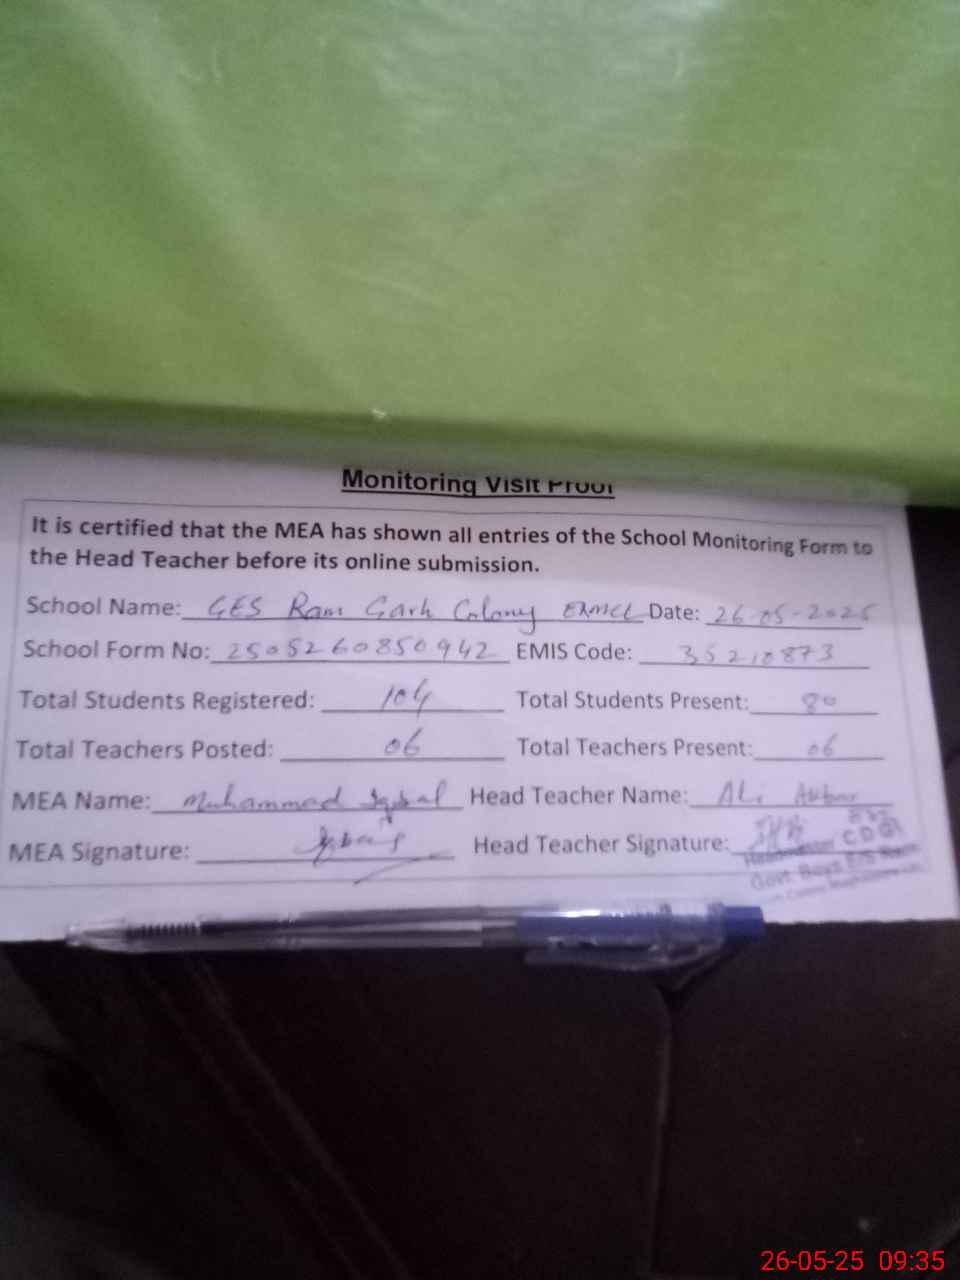 Monitoring Visit Proof
It is certified that the MEA has shown all entries of the School Monitoring Form to
the Head Teacher before its online submission.
School Name: GES Ram Garh Colony Date: 26-05-2025
School Form No: 2505260850942 EMIS Code: 35210873
Total Students Registered: 104 Total Students Present: 80
Total Teachers Posted: 06 Total Teachers Present: 06
MEA Name: Muhammad Iqbal Head Teacher Name: Ali
MEA Signature: Head Teacher Signature:
Headmaster CDGL
Govt. Boys E/S
26-05-25 09:35